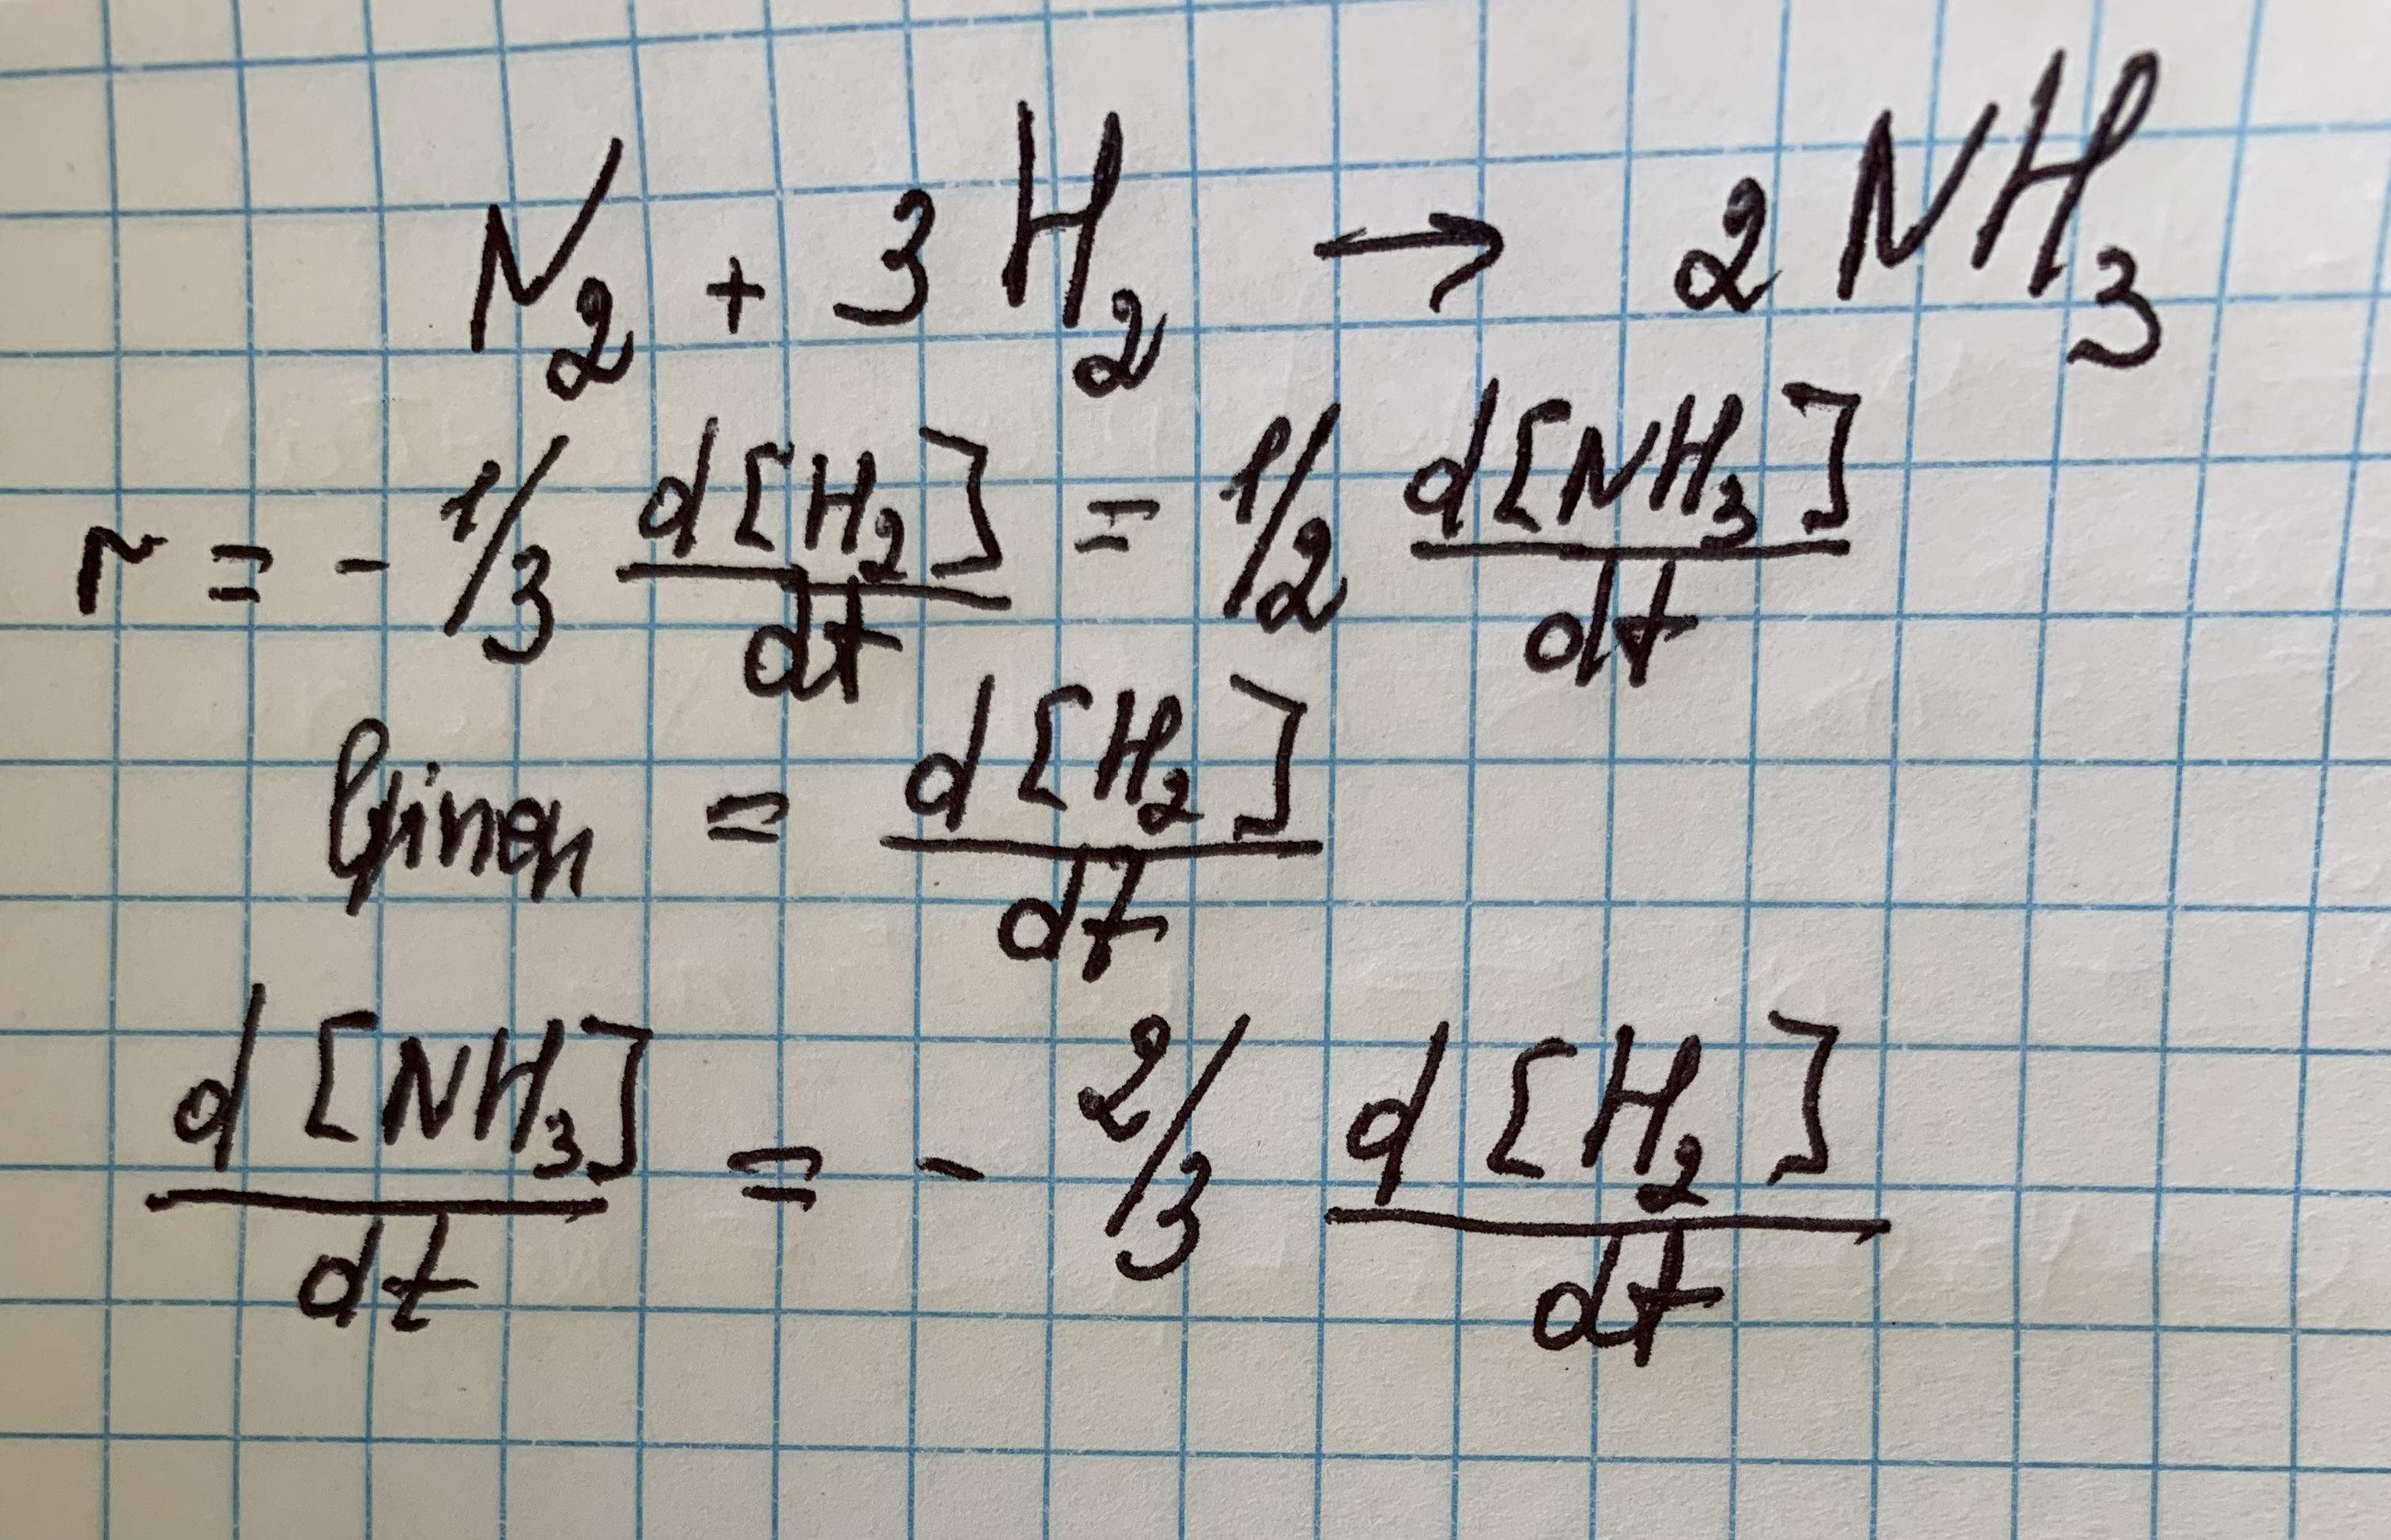 N₂ + 3 H₂ → 2 NH₃
r = - 1/3 d[H₂]/dt = 1/2 d[NH₃]/dt
Given = d[H₂]/dt
d[NH₃]/dt = - 2/3 d[H₂]/dt